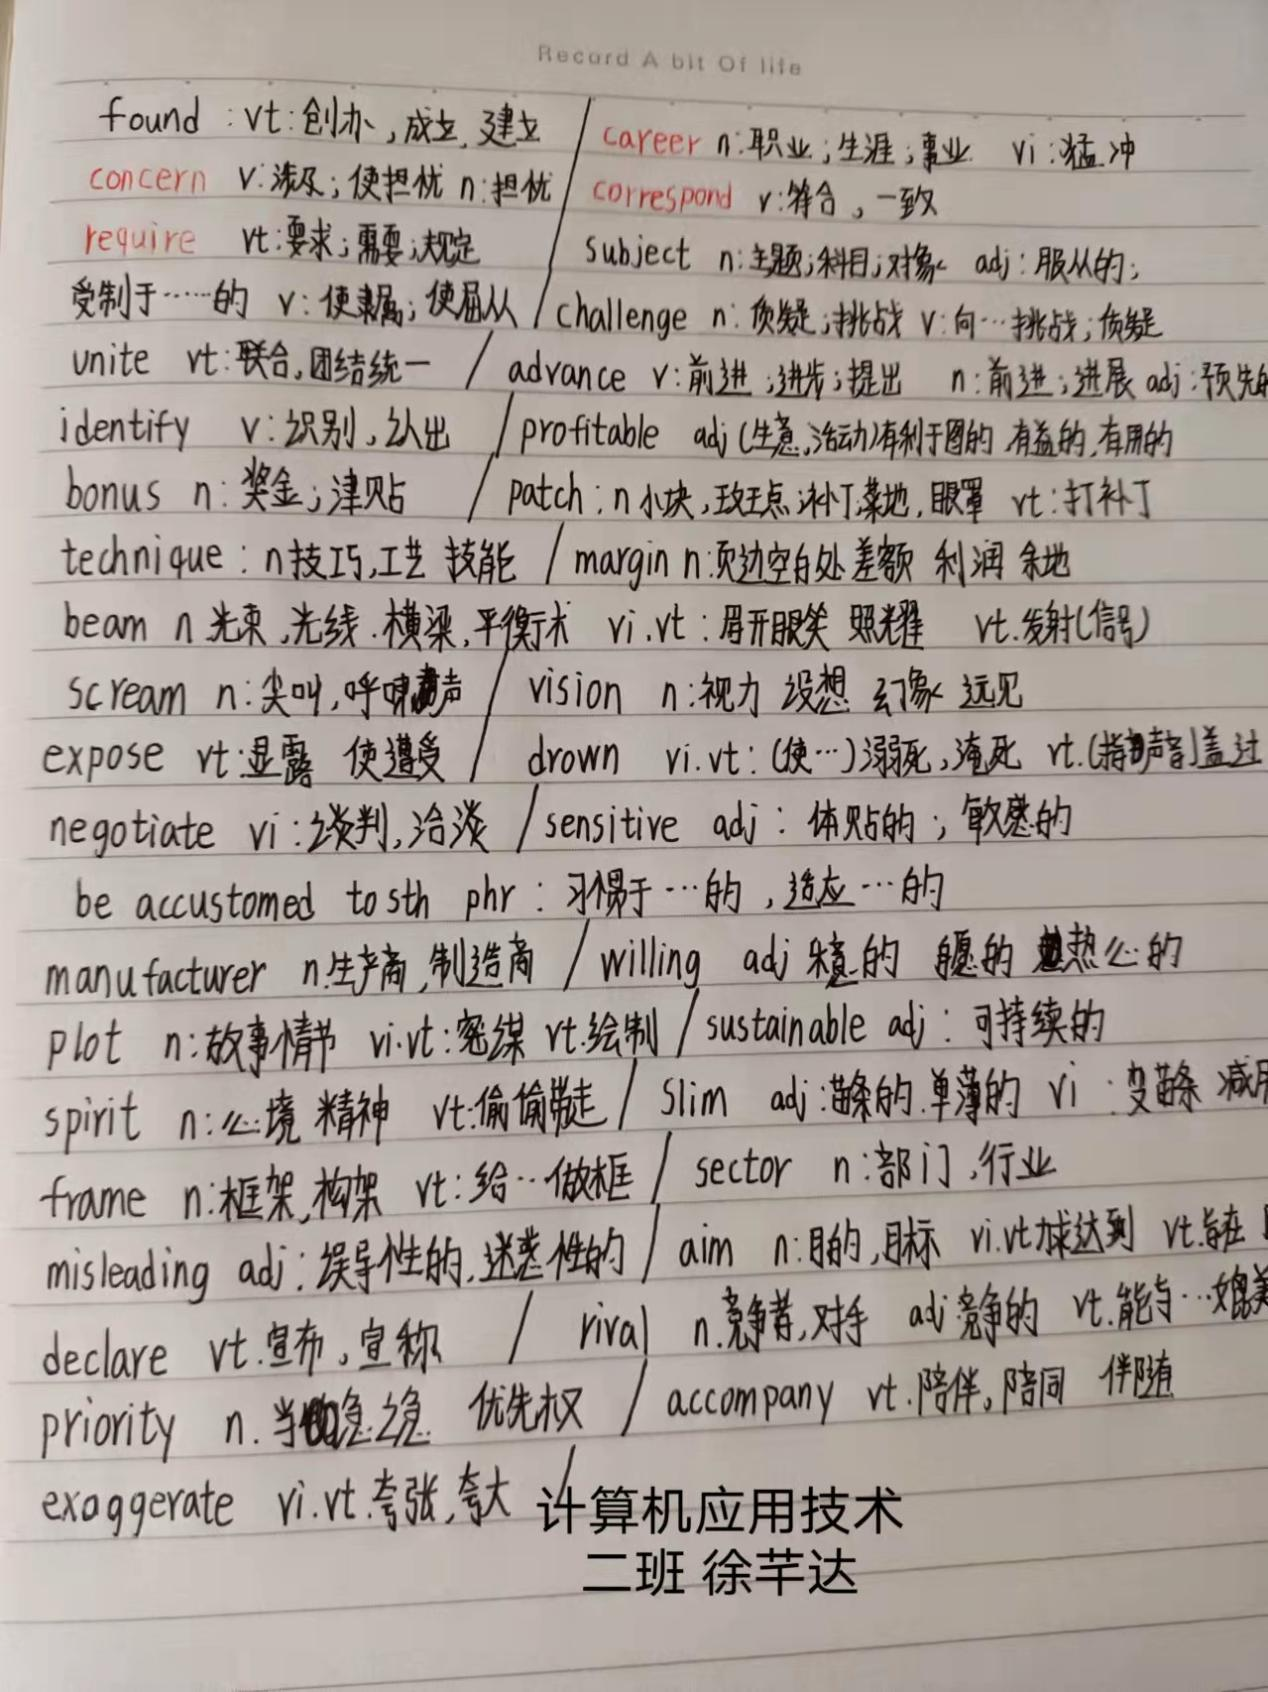 Record A bit Of life
found : vt: 创办, 成立, 建立 / career n: 职业; 生涯; 事业 vi: 猛冲
concern v: 涉及; 使担忧 n: 担忧 / correspond v: 符合, 一致
require vt: 要求; 需要; 规定 / subject n: 主题; 科目; 对象 adj: 服从的;
受制于……的 v: 使隶属; 使屈从 / challenge n: 质疑; 挑战 v: 向…挑战; 质疑
unite vt: 联合, 团结统一 / advance v: 前进; 进步; 提出 n: 前进; 进展 adj: 预先的
identify v: 识别, 认出 / profitable adj (生意, 活动)有利于图的 有益的, 有用的
bonus n: 奖金; 津贴 / patch: n 小块, 斑点; 补丁; 菜地, 眼罩 vt: 打补丁
technique: n 技巧, 工艺 技能 / margin n: 页边空白处 差额 利润 余地
beam n 光束, 光线. 横梁, 平衡木 vi.vt: 眉开眼笑 照耀 vt. 发射(信号)
scream n: 尖叫, 呼啸声 / vision n: 视力 设想 幻象 远见
expose vt: 显露 使遭受 / drown vi.vt: (使…)溺死, 淹死 vt. (指声音)盖过
negotiate vi: 谈判, 洽谈 / sensitive adj: 体贴的; 敏感的
be accustomed to sth phr: 习惯于…的, 适应…的
manufacturer n. 生产商, 制造商 / willing adj 乐意的 自愿的 热心的
plot n: 故事情节 vi.vt: 密谋 vt. 绘制 / sustainable adj: 可持续的
spirit n: 心境 精神 vt: 偷偷带走 / slim adj: 苗条的. 单薄的 vi: 变苗条 减肥
frame n: 框架, 构架 vt: 给…做框 / sector n: 部门, 行业
misleading adj: 误导性的, 迷惑性的 / aim n: 目的, 目标 vi.vt 力求达到 vt. 旨在
declare vt. 宣布, 宣称 / rival n. 竞争者, 对手 adj 竞争的 vt. 能与…媲美
priority n. 当务之急 优先权 / accompany vt. 陪伴, 陪同 伴随
exaggerate vi.vt. 夸张, 夸大 /
计算机应用技术
二班 徐芊达